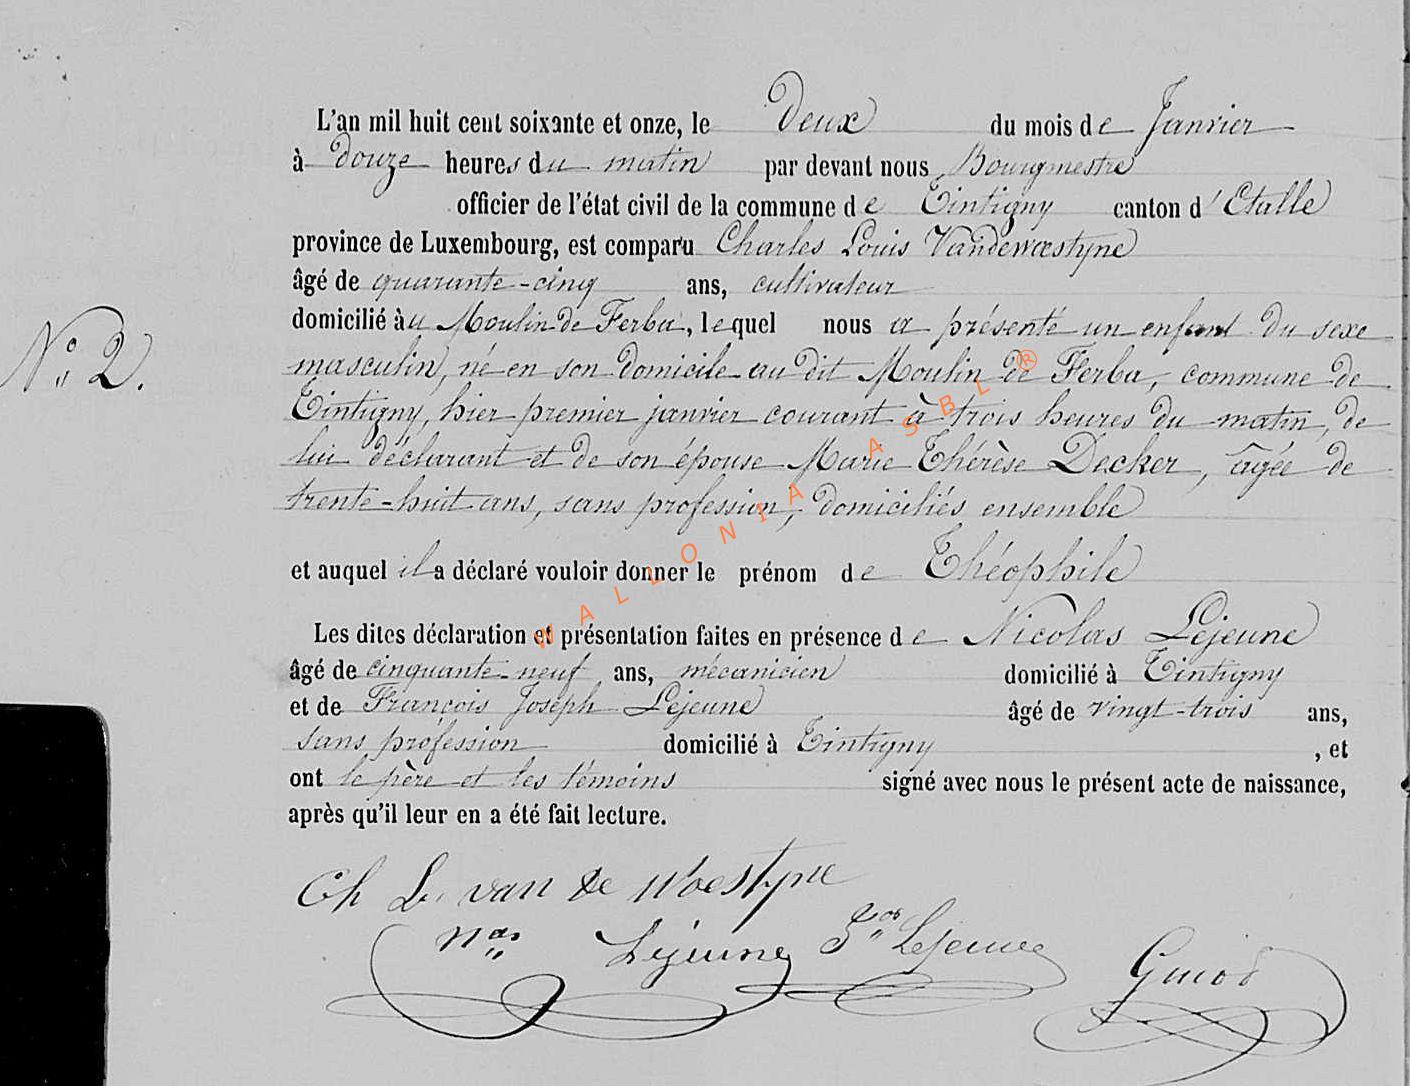 L'an mil huit cent soixante et onze, le deux du mois de Janvier
à douze heures du matin par devant nous Bourgmestre
officier de l'état civil de la commune de Tintigny canton d'Etalle
province de Luxembourg, est comparu Charles Louis Vandewoestyne
âgé de quarante-cinq ans, cultivateur
domicilié au Moulin de Ferba, lequel nous a présenté un enfant du sexe
N° 2.
masculin, né en son domicile au dit Moulin de Ferba, commune de
Tintigny, hier premier janvier courant à trois heures du matin, de
lui déclarant et de son épouse Marie Thérèse Decker, âgée de
trente-huit ans, sans profession, domiciliés ensemble
et auquel il a déclaré vouloir donner le prénom de Théophile
Les dites déclaration et présentation faites en présence de Nicolas Lejeune
âgé de cinquante-neuf ans, mécanicien domicilié à Tintigny
et de François Joseph Lejeune âgé de vingt-trois ans,
sans profession domicilié à Tintigny , et
ont le père et les témoins signé avec nous le présent acte de naissance,
après qu'il leur en a été fait lecture.
Ch L. van de Woestyne
Nas Lejeune Fois Lejeune
WALLONIA ASBL®